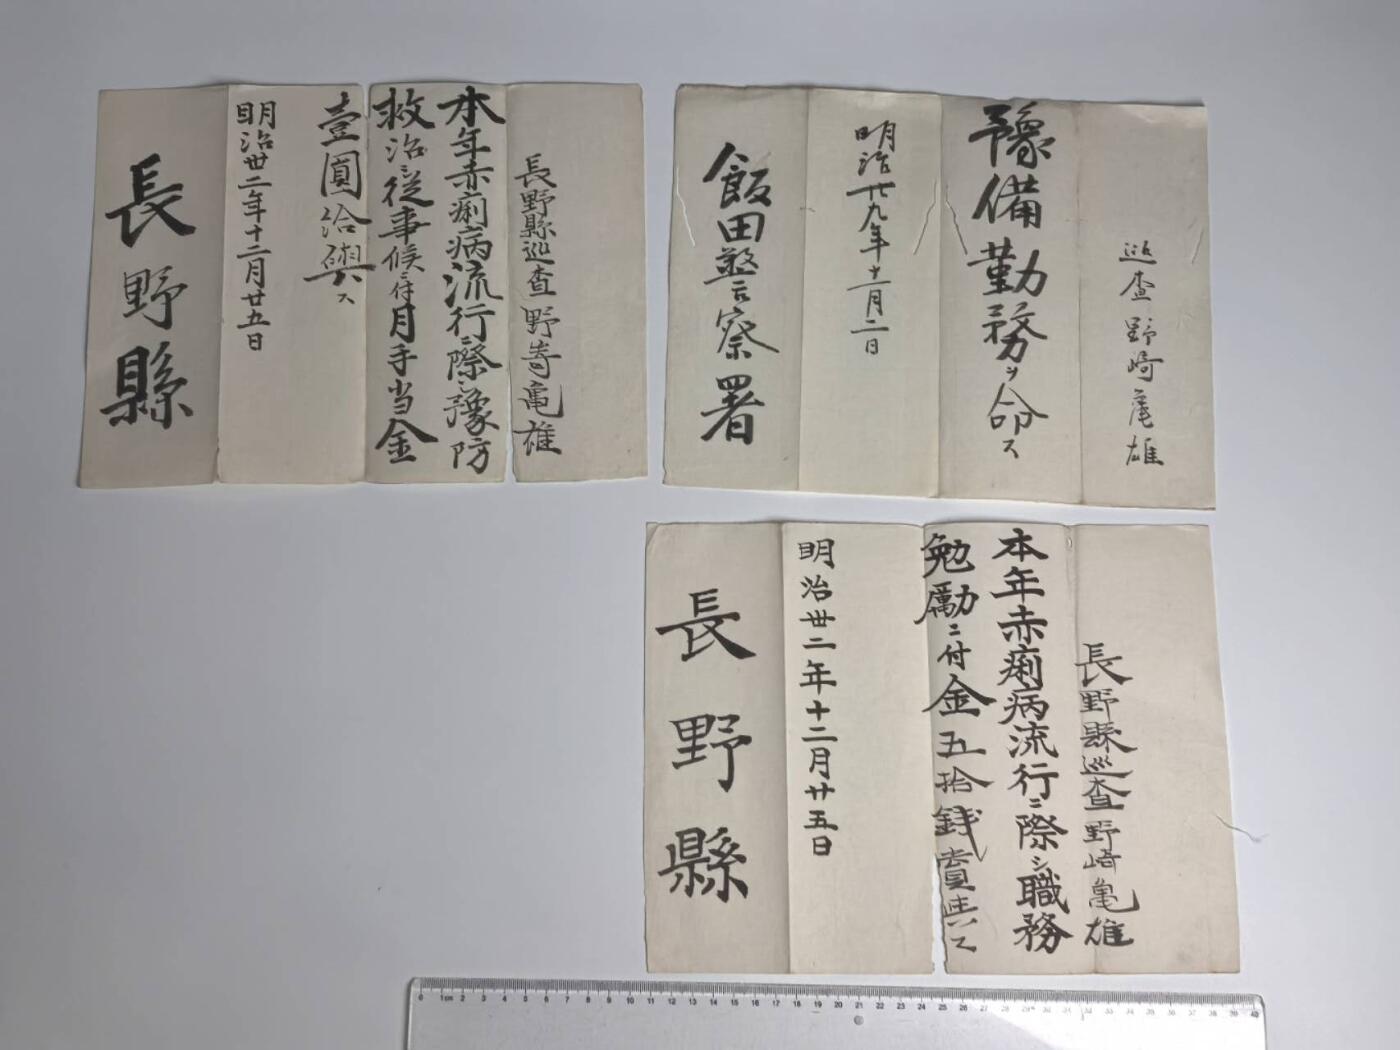 長野縣巡査 野嵜亀雄
本年赤痢病流行ニ際シ豫防
救治ニ従事候ニ付月手当金
壹圓給與ス
明治丗二年十二月廿五日
長野縣
巡査 野崎亀雄
豫備勤務ヲ命ス
明治廿九年十一月二日
飯田警察署
長野縣巡査 野崎亀雄
本年赤痢病流行ニ際シ職務
勉励ニ付金五拾銭賞與ス
明治丗二年十二月廿五日
長野縣
0 1cm 2 3 4 5 6 7 8 9 10 11 12 13 14 15 16 17 18 19 20 21 22 23 24 25 26 27 28 29 30 31 32 33 34 35 36 37 38 39 40